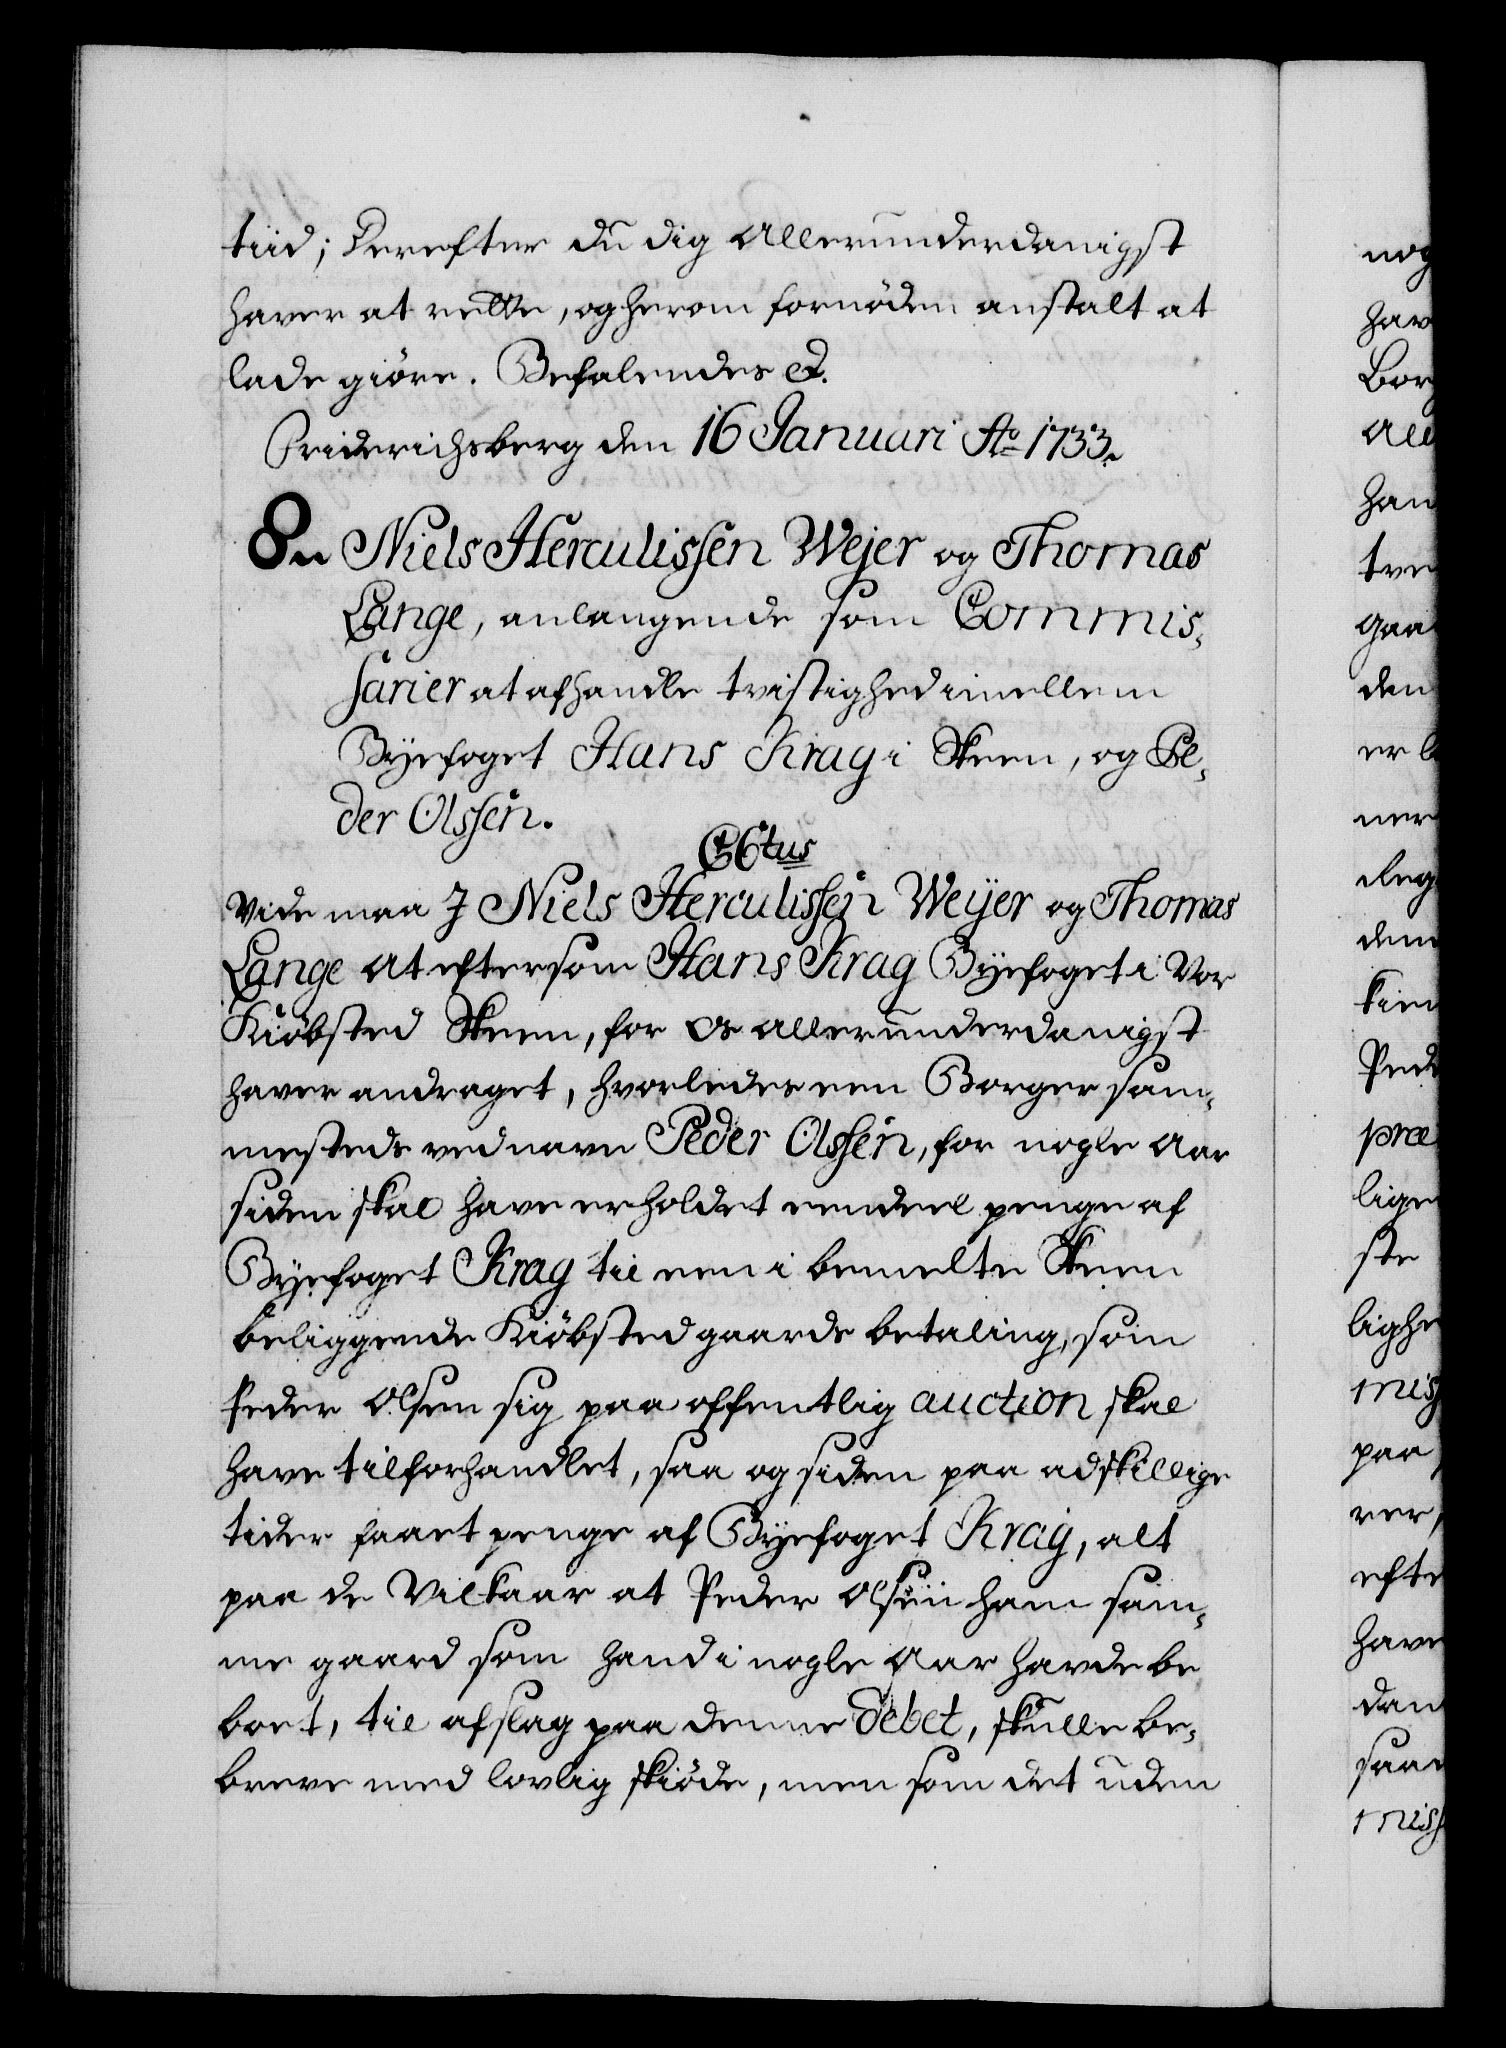 tiid; Derefter du dig allerunderdanigst
haver at rette, og herom fornøden anstalt at
lade giøre. Befalendes &.
Friderichsberg den 16 Januari Ao 1733.
8. Niels Herculissen Wejer og Thomas
Lange, anlangende som Commis-
sarier at afhandle tvistighed imellem
Byefoget Hans Krag i Skeen, og Pe-
der Olssen.
C6tus
Vide maa I Niels Herculissen Weyer og Thomas
Lange at eftersom Hans Krag Byefoget i Vor
Kiøbsted Skeen, for os allerunderdanigst
haver andraget, hvorledes een Borger sam-
mesteds ved navn Peder Olssen, for nogle Aar
siden skal have erholdet eendeel penge af
Byefoget Krag til een i bemelte Skeen
beliggende Kiøbstedgaards betaling, som
Peder Olsen sig paa offentlig auction skal
have tilforhandlet, saa og siden paa adskillige
tider faaet penge af Byefoget Krag, alt
paa de Vilkaar at Peder Olsen ham sam-
me gaard som hand i nogle Aar havde be
boet, til afslag paa denne debet, skulle be-
breve med lovlig skiøde, men som det uden
nog
hav
Bor
all
han
tve
gaa
den
er b
ner
deg
dem
kien
Ped
præ
lige
ste
lighe
miss
paa
ver,
efte
have
dan
saa
miss